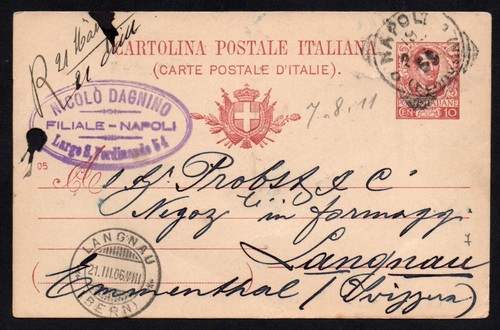 R 21 Marzo
CARTOLINA POSTALE ITALIANA
(CARTE POSTALE D'ITALIE).
NAPOLI
10
NICOLÒ DAGNINO
FILIALE - NAPOLI
Largo S. Ferdinando 54
7-8-11
05
Sigr. Probst & Ci
Negoz in formaggi
Langnau
Emmenthal (Svizzera)
LANGNAU
21.III.06.VIII
(BERN)